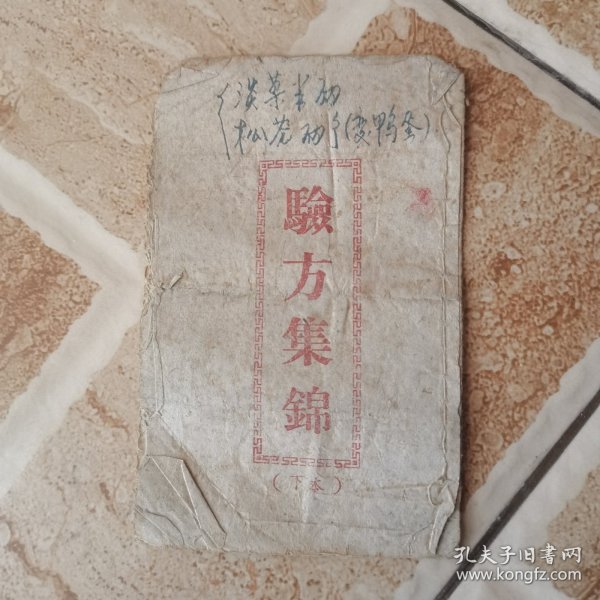 淡菜半斤
松花
(变鸭蛋)
驗方集錦
(下本)
孔夫子旧书网
www.kongfz.com